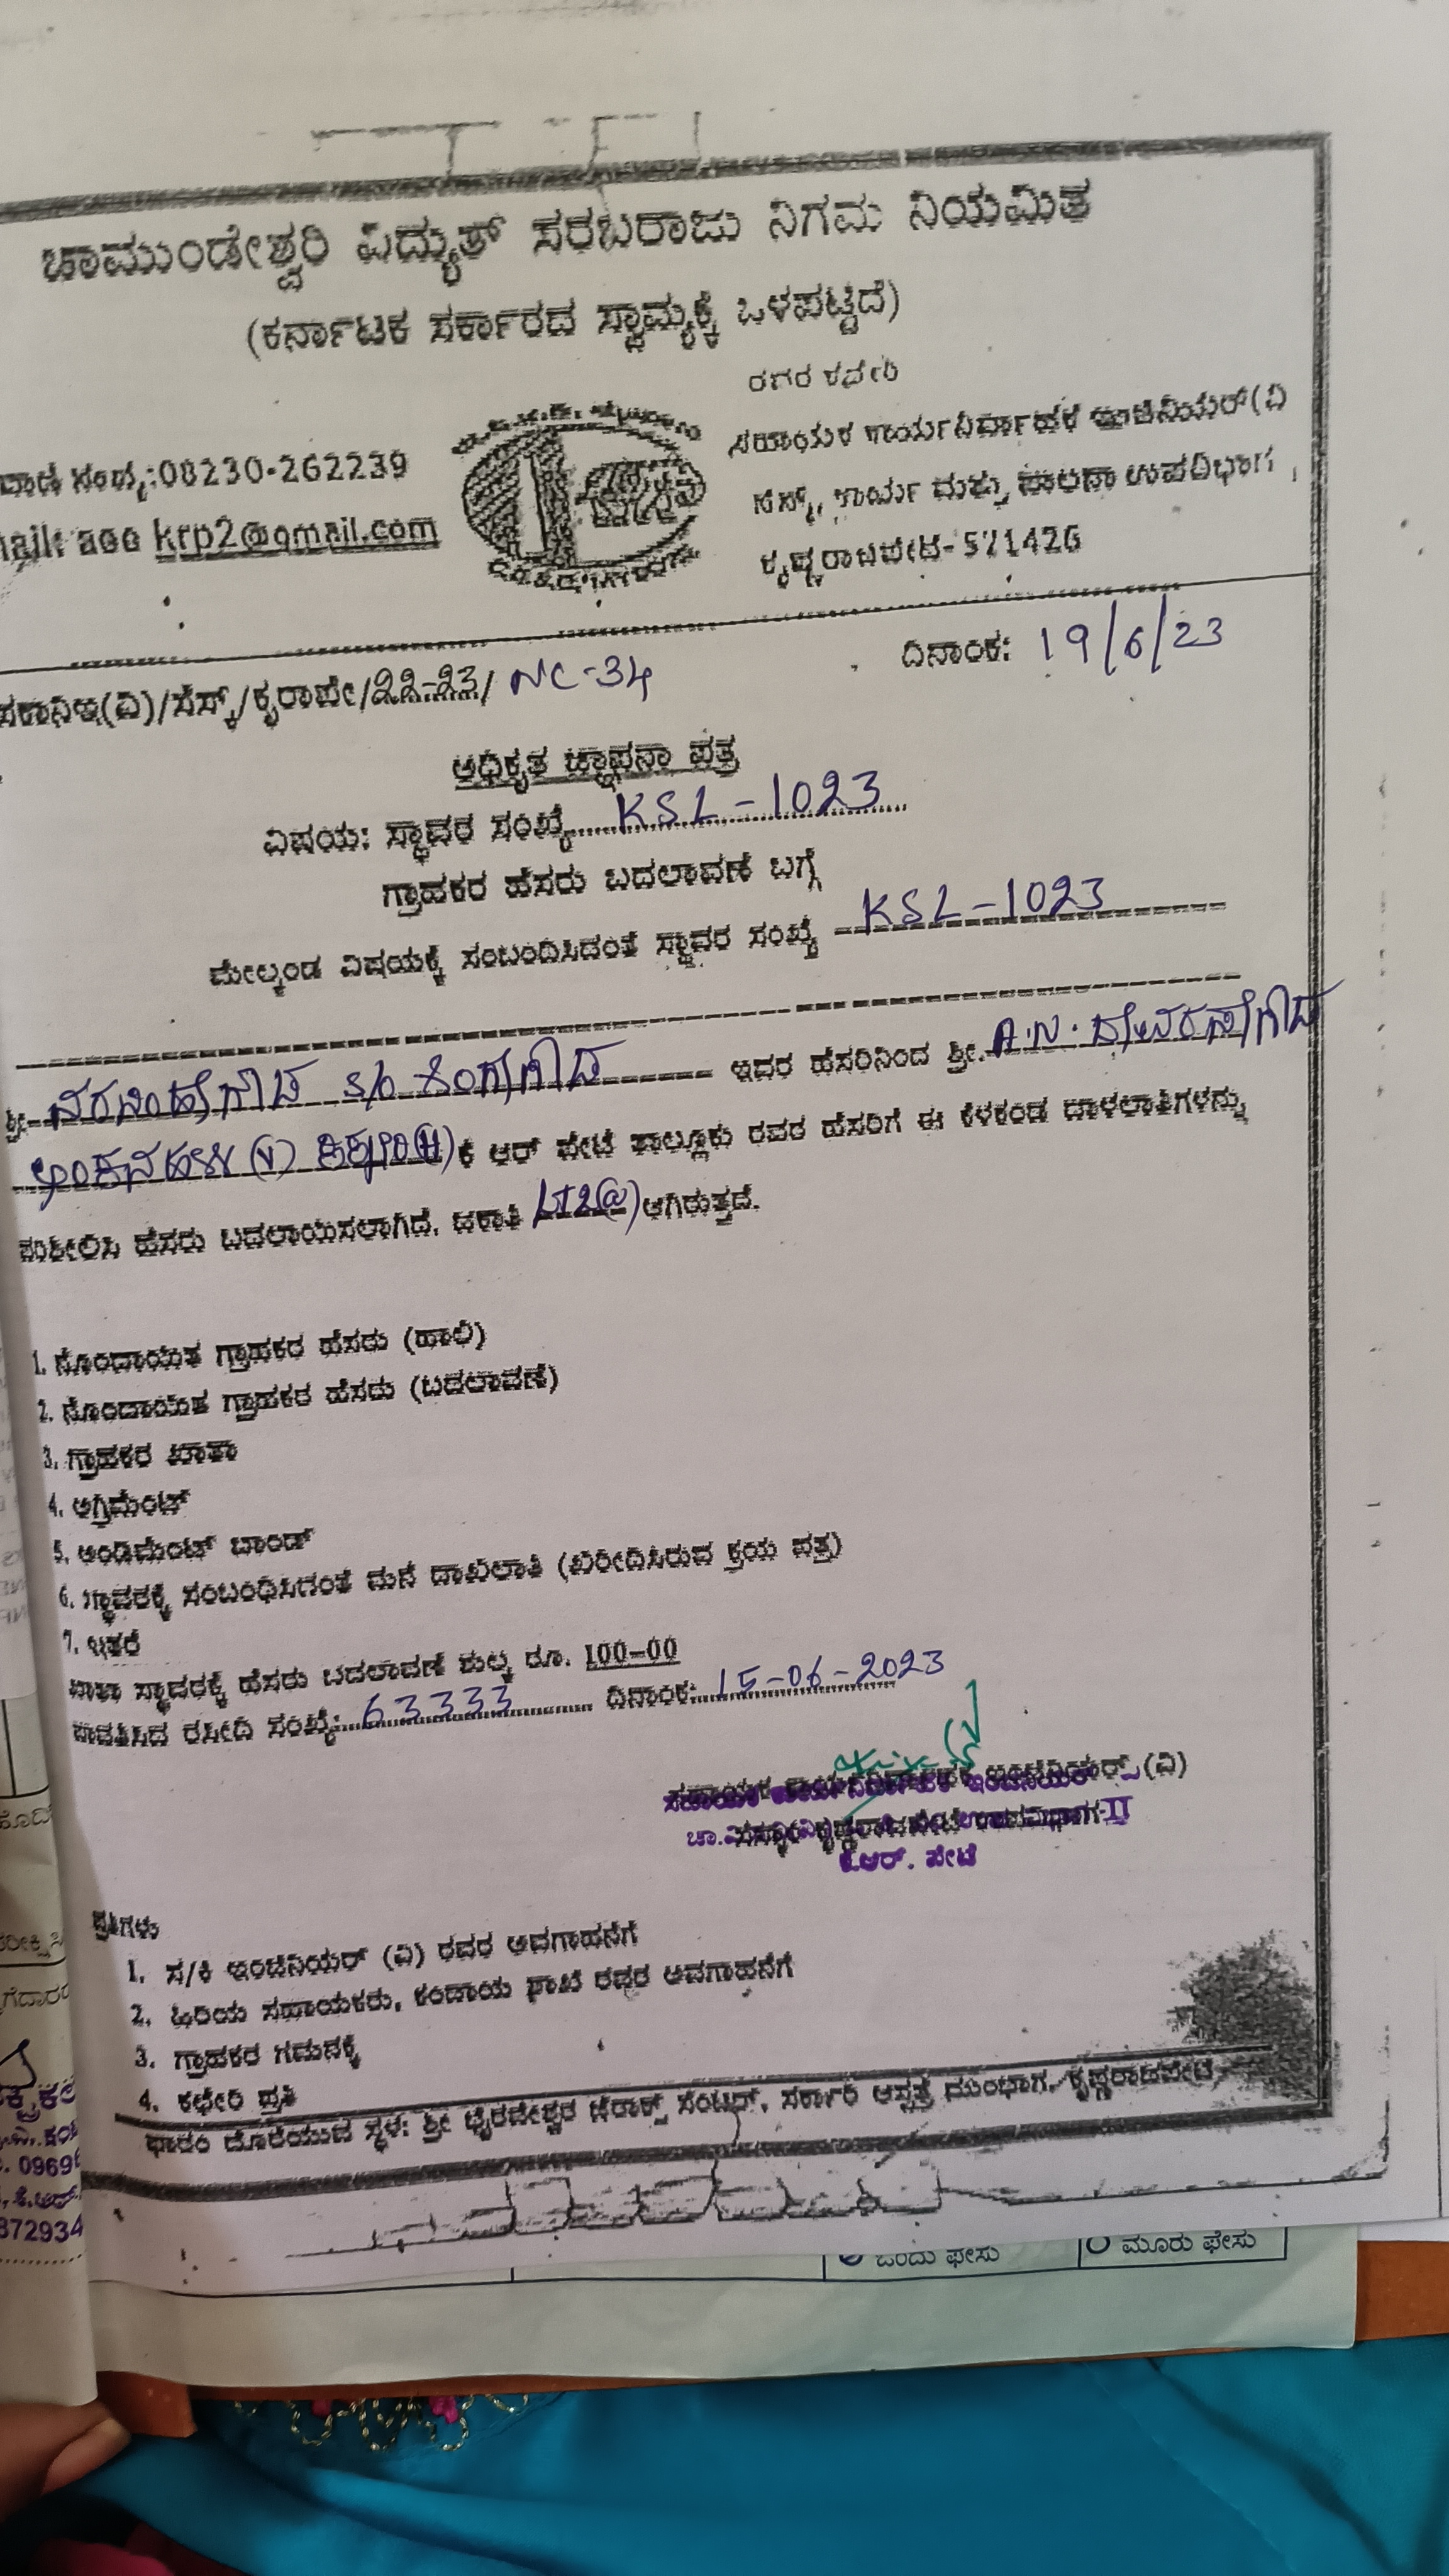 ಚಾಮುಂಡೇಶ್ವರಿ ವಿದ್ಯುತ್ ಸರಬರಾಜು ನಿಗಮ ನಿಯಮಿತ
(ಕರ್ನಾಟಕ ಸರ್ಕಾರದ ಸ್ವಾಮ್ಯಕ್ಕೆ ಒಳಪಟ್ಟಿದೆ)
ಸಹಾಯಕ ಕಾರ್ಯನಿರ್ವಾಹಕ ಇಂಜಿನಿಯರ್(ವಿ
:08230-262239
ಸೆಸ್ಕ್, ಕಾರ್ಯ ಮತ್ತು ಪಾಲನಾ ಉಪವಿಭಾಗ
krp2@gmail.com
ಕೃಷ್ಣರಾಜಪೇಟೆ- 571426
ಸಕಾನಿಇ(ವಿ)/ಸೆಸ್ಕ್/ಕೃರಾಪೇ/22-23/ NC-34
ದಿನಾಂಕ: 19/6/23
ಅಧಿಕೃತ ಜ್ಞಾಪನಾ ಪತ್ರ
ವಿಷಯ: ಸ್ಥಾವರ ಸಂಖ್ಯೆ KSL-1023
ಗ್ರಾಹಕರ ಹೆಸರು ಬದಲಾವಣೆ ಬಗ್ಗೆ
ಮೇಲ್ಕಂಡ ವಿಷಯಕ್ಕೆ ಸಂಬಂದಿಸಿದಂತೆ ಸ್ಥಾವರ ಸಂಖ್ಯೆ KSL-1023
ಶ್ರೀ ನರಸಿಂಹೇಗೌಡ S/o ಇವರ ಹೆಸರಿನಿಂದ ಶ್ರೀ. A.N. ದೇವರಸೇಗೌಡ
(V) (H) ಕೆ ಆರ್ ಪೇಟೆ ತಾಲ್ಲೂಕು ರವರ ಹೆಸರಿಗೆ ಈ ಕೆಳಕಂಡ ದಾಖಲಾತಿಗಳನ್ನು
ಪರಿಶೀಲಿಸಿ ಹೆಸರು ಬದಲಾಯಿಸಲಾಗಿದೆ. ಜಕಾತಿ LT2(a) ಆಗಿರುತ್ತದೆ.
1. ನೊಂದಾಯಿತ ಗ್ರಾಹಕರ ಹೆಸರು (ಹಾಲಿ)
2. ನೊಂದಾಯಿತ ಗ್ರಾಹಕರ ಹೆಸರು (ಬದಲಾವಣೆ)
3. ಗ್ರಾಹಕರ ಖಾತಾ
4. ಅಗ್ರಿಮೆಂಟ್
5. ಇಂಡಿಮೆಂಟ್ ಬಾಂಡ್
6. ಸ್ಥಾವರಕ್ಕೆ ಸಂಬಂಧಿಸಿದಂತೆ ಮನೆ ದಾಖಲಾತಿ (ಖರೀದಿಸಿರುವ ಕ್ರಯ ಪತ್ರ)
7. ಇತರೆ
ಸ್ಥಾವರಕ್ಕೆ ಹೆಸರು ಬದಲಾವಣೆ ಶುಲ್ಕ ರೂ. 100-00
ಪಾವತಿಸಿದ ರಸೀದಿ ಸಂಖ್ಯೆ: 63333 ದಿನಾಂಕ: 15-06-2023
ಸಹಾಯಕ ಕಾರ್ಯನಿರ್ವಾಹಕ ಇಂಜಿನಿಯರ್ (ವಿ)
ಕೆ.ಆರ್. ಪೇಟೆ
ಪ್ರತಿಗಳು
1. ಸ/ಕಿ ಇಂಜಿನಿಯರ್ (ವಿ) ರವರ ಅವಗಾಹನೆಗೆ
2. ಹಿರಿಯ ಸಹಾಯಕರು, ಕಂದಾಯ ಶಾಖೆ ರವರ ಅವಗಾಹನೆಗೆ
3. ಗ್ರಾಹಕರ ಗಮನಕ್ಕೆ
4. ಕಛೇರಿ ಪ್ರತಿ
ಫಾರಂ ದೊರೆಯುವ ಸ್ಥಳ: ಶ್ರೀ ಭೈರವೇಶ್ವರ ಜೆರಾಕ್ಸ್ ಸೆಂಟರ್, ಸರ್ಕಾರಿ ಆಸ್ಪತ್ರೆ ಮುಂಭಾಗ, ಕೃಷ್ಣರಾಜಪೇಟೆ
ಒಂದು ಫೇಸು
ಮೂರು ಫೇಸು